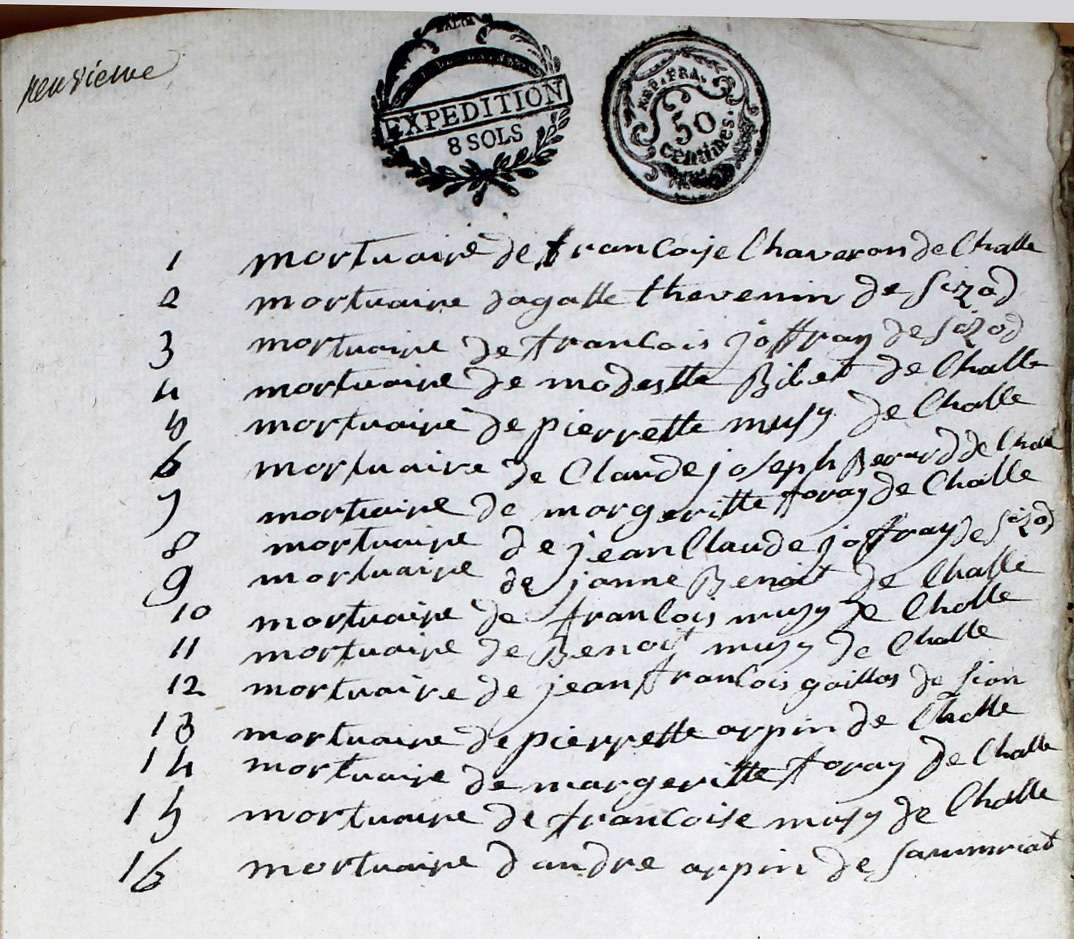 neuvieme
EXPEDITION
8 SOLS
REP. FRA.
50
centimes.
1 mortuaire de francoise Chaveron de Challe
2 mortuaire dagatte thevenin de sizod
3 mortuaire de francois joffray de sizod
4 mortuaire de modestte Bibet de Challe
5 mortuaire de pierrette musy de Challe
6 mortuaire de Claude joseph Berard de Challe
7 mortuaire de margeritte foray de Challe
8 mortuaire de jean Claude joffray de sizod
9 mortuaire de janne Benoit de Challe
10 mortuaire de francois musy de Challe
11 mortuaire de Benoit musy de Challe
12 mortuaire de jean francois gaillos de sion
13 mortuaire de pierrette arpin de Challe
14 mortuaire de margeritte foray de Challe
15 mortuaire de francoise musy de Challe
16 mortuaire dandre arpin de